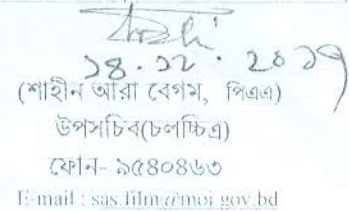 ১৪.১২.২০১৭
(শাহীন আরা বেগম, পিএএ)
উপসচিব(চলচ্চিত্র)
ফোন- ৯৫৪০৪৬৩
E-mail : sas.film@moi.gov.bd